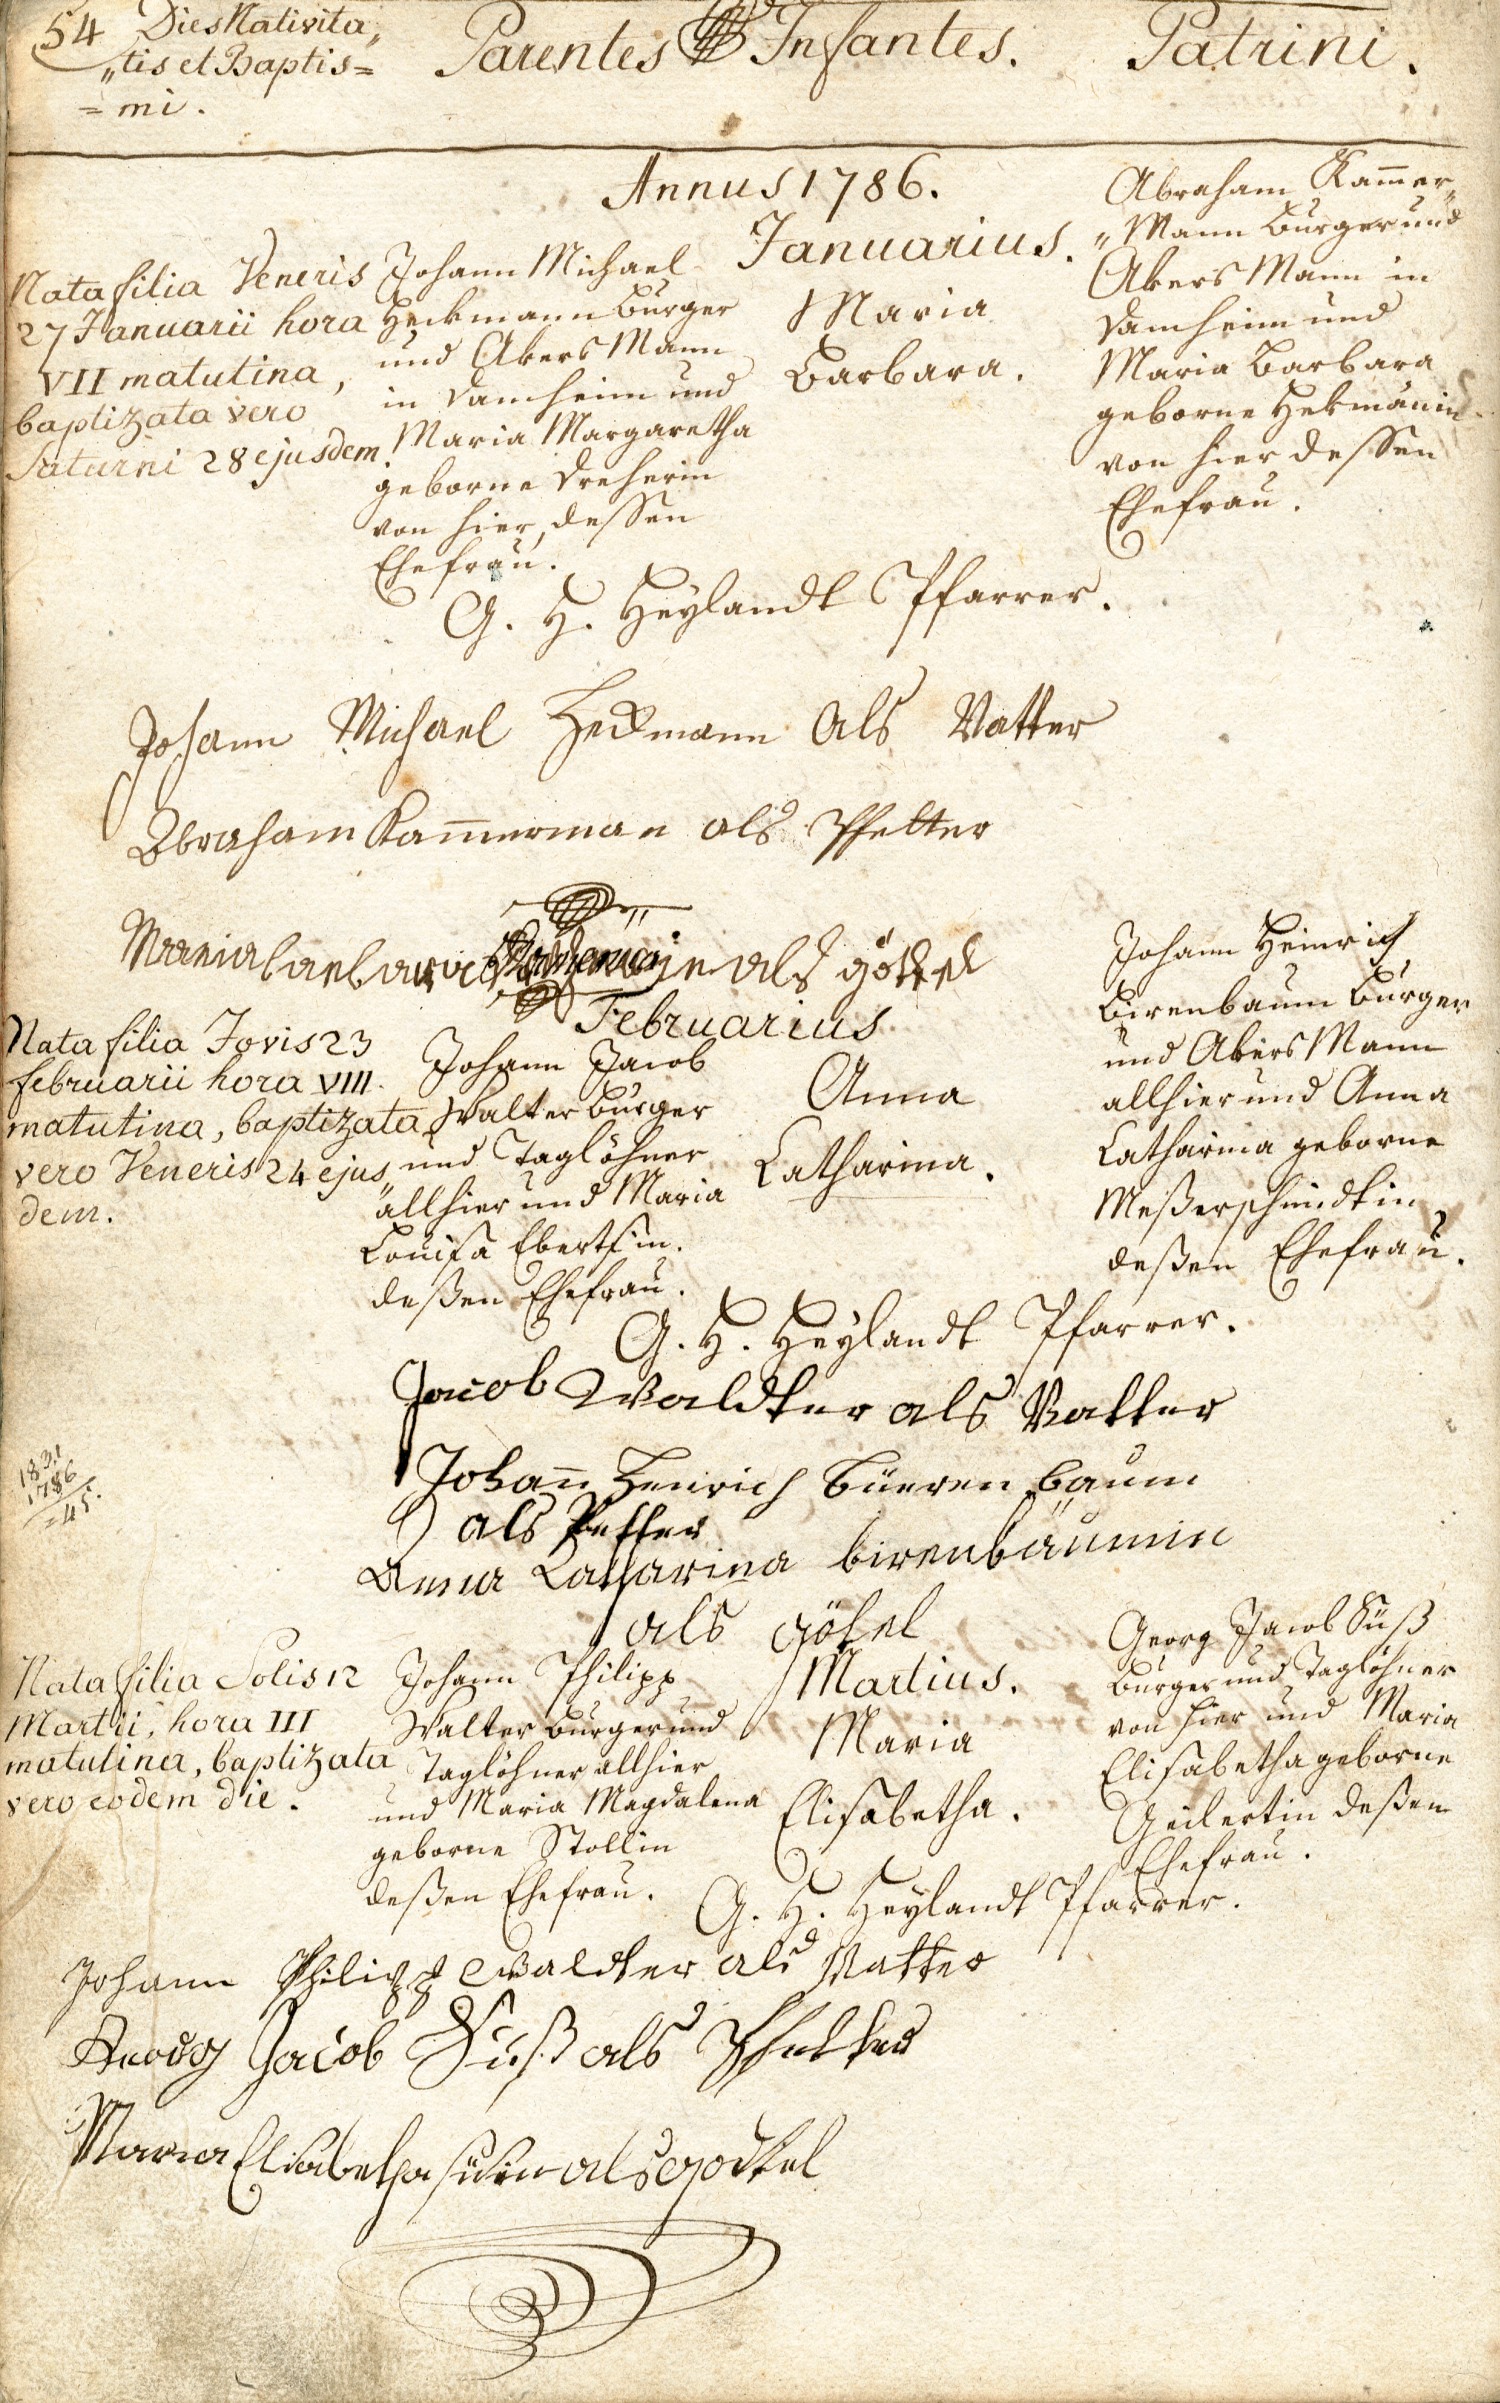 54 Dies Nativita„
„tis et Baptis=
=mi.
Parentes Infantes.
Patrini.
Annus 1786.
Januarius.
Nata filia Veneris
27 Januarii hora
VII matutina,
baptizata vero
Saturni 28 ejusdem.
Johann Michael
Heckmann Burger
und Akers Mann
in Damheim und
Maria Margaretha
geborne Dreherin
von hier, dessen
Ehefrau.
Maria
Barbara.
Abraham Kam̅er„
„Mann Burger und
Akers Mann in
Damheim und
Maria Barbara
geborne Hekmänin
von hier dessen
Ehefrau.
G. H. Heylandt Pfarrer.
Johann Michael Heckmann Als Vatter
Abraham Kam̅erman als Pfetter
Maria barbara als göttel
Februarius
Nata filia Jovis 23
februarii hora VIII.
matutina, baptizata
vero Veneris 24 ejus„
dem.
Johann Jacob
Walter Burger
und Taglöhner
allhier und Maria
Louisa Ebertsin.
deßen Ehefrau.
Anna
Catharina.
Johann Heinrich
Birenbaum Burger
und Akers Mann
allhier und Anna
Catharina geborne
Meßerschmidtin
deßen Ehefrau.
G. H. Heylandt Pfarrer.
Jacob Waldter als Vatter
Johan̅ Henrich Büeren baum
als Petter
Anna Catharina birenbäumin
als götel
1831
1786
=45.
Martius.
Nata filia Solis 12
Martii, hora III
matutina, baptizata
vero eodem die.
Johann Philipp
Walter Burger und
Taglöhner allhier
und Maria Magdalena
geborne Stollin
deßen Ehefrau.
Maria
Elisabetha.
Georg Jacob Süß
Burger und Taglöhner
von hier und Maria
Elisabetha geborne
Geilertin deßen
Ehefrau.
G. H. Heylandt Pfarrer.
Johann Philipp Waldter als Vatter
Georg Jacob Süß als Pfetter
Maria Elisabetha süsin als godtel